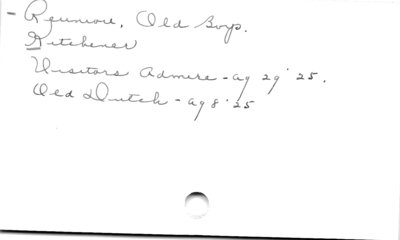 - Reunion, Old Boys.
Kitchener
Visitors Admire - ag 29 '25.
Old Dutch - ag 8 '25